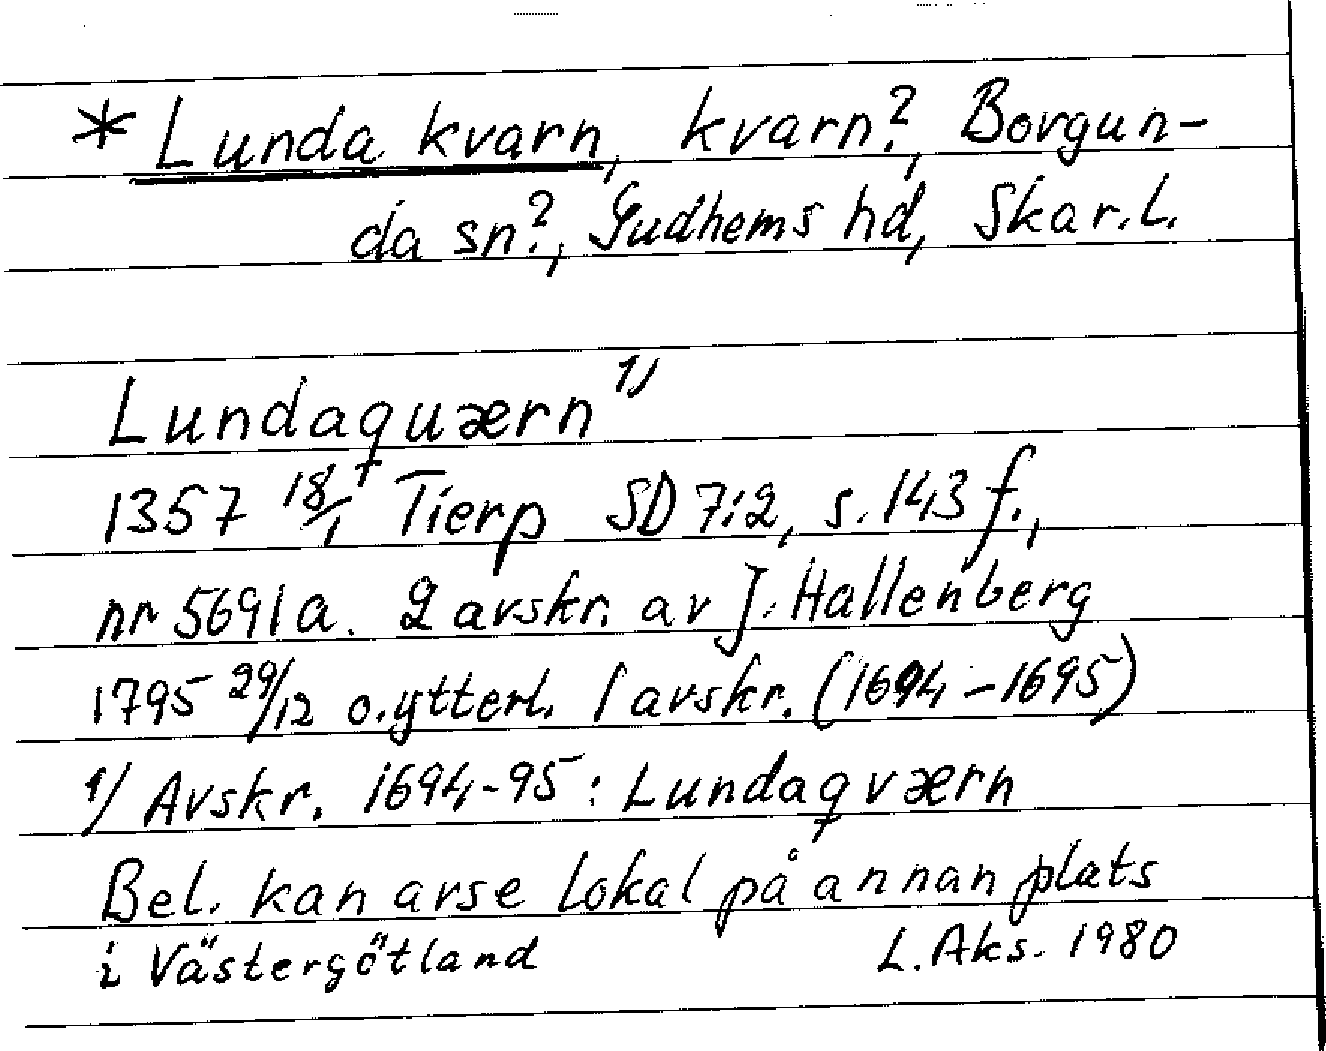 * Lunda kvarn, kvarn?, Borgun-
da sn?, Gudhems hd, Skar. l.
Lundaquærn 1)
1357 18/1 Tierp SD 7:2, s. 143 f.,
nr 5691a. 2 avskr. av J. Hallenberg
1795 29/12 o. ytterl. 1 avskr. (1694-1695)
1/ Avskr. 1694-95: Lundaqværn
Bel. kan avse lokal på annan plats
i Västergötland L. Aks. 1980